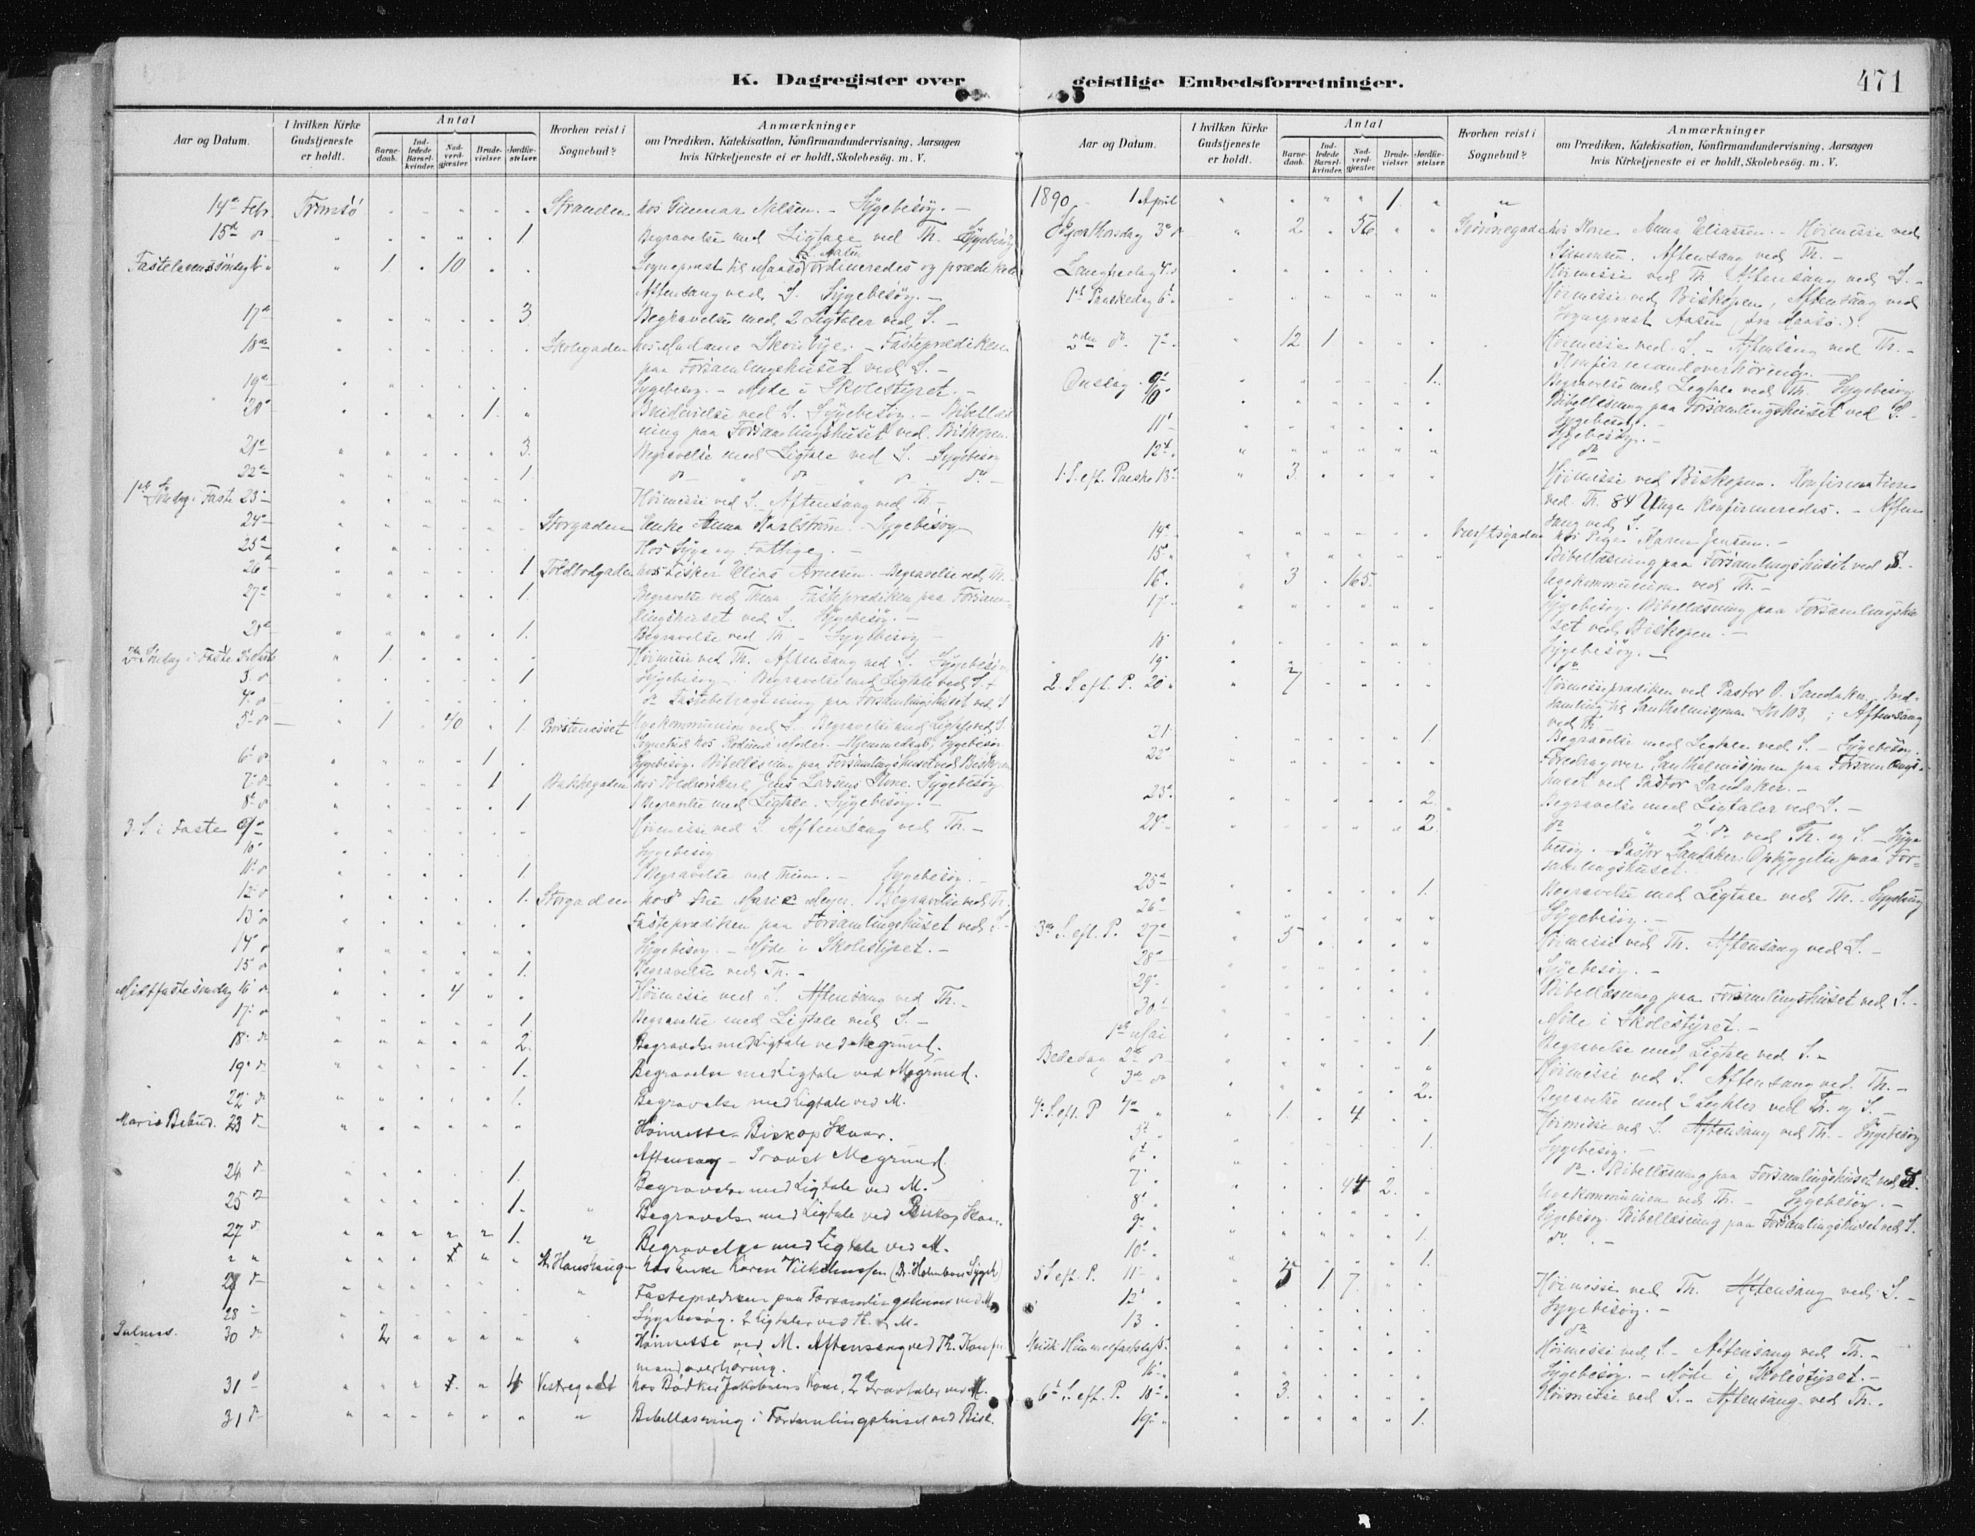 K. Dagregister over geistlige Embedsforretninger.
471
Aar og Datum.
I hvilken Kirke Gudstjeneste er holdt.
Antal
Barnedaab.
Indledede Barselkvinder.
Nadverdgjæster.
Brudevielser.
Jordfæstelser.
Hvorhen reist i Sognebud?
Anmærkninger
om Prædiken, Katekisation, Konfirmandundervisning, Aarsagen
hvis Kirketjeneste ei er holdt, Skolebesög. m. V.
14de Febr. Tromsö Stranden hos Gunnar Nilsen. – Sygebesøg. –
15de d 1 Begravelse med Ligtale ved Th. Sygebesøg
1 10 Sogneprest til Maasø Aasen ordineredes og prædikede
Aftensang ved S. Sygebesøg. –
17de 3 Begravelse med 2 Ligtaler ved S. –
18de Skolegaden hos Madame – Fasteprædiken
paa Forsamlingshuset ved S. –
19de Sygebesøg. – Møde i Skolestyret. –
20de 1. Brudevielse ved S. Sygebesøg. – Bibellæs
ning paa Forsamlingshuset ved Biskopen.
21de 3. Begravelse med Ligtale ved S. Sygebesøg
22de 1
1ste Søndag i Faste 23 Høimesse ved S. Aftensang ved Th. –
24de Storgaden Enke Anna Karlstrøm. Sygebesøg
25de Hos Syge og Fattige. –
26de 1 Toldbodgaden hos Fisker Elias Arnesen. Begravelse ved Th.
27de 1. Begravelse ved Thuen. Fasteprædiken paa Forsam-
lingshuset ved S. Sygebesøg. –
28de 1. Begravelse ved Th. – Sygebesøg –
2den Søndag i Faste 1 Høimesse ved Th. Aftensang ved S. Sygebesøg
3. d 1 Sygebesøg – Begravelse med Ligtale ved S.
4. d do Fastebetragtning paa Forsamlingshuset ved S
5. d 1 40 1. Ugekommunion ved S. Begravelse med Ligtale ved S.
6. d 1 Sygebesøg. Bibellæsning paa Forsamlingshuset ved Biskopen
7. d 1 Bakkegaden hos Jens Larsens Kone. Sygebesøg
8. d 1 Begravelse med Ligtale. Sygebesøg. –
3. S. i Faste 9de Høimesse ved S. Aftensang ved Th. –
10 Sygebesøg
11 d 1 Begravelse ved Thuen. – Sygebesøg. –
12. d 1. Storgaden hos Fru Marie Meyer. Begravelse ved Th.
13 d Fasteprædiken paa Forsamlingshuset ved S. –
14 d Sygebesøg. – Møde i Skolestyret. –
15 d 1. Begravelse ved Th. –
Midtfastesøndag 16 d 4 Høimesse ved S. Aftensang ved Th. –
17. d 1 Begravelse med Ligtale ved S. –
18. d 2. Begravelse med Ligtale ved Megrund.
19. d 1. Begravelse med Ligtale ved Megrund.
22. d 1. Begravelse med Ligtale ved M.
Mariæ Bebud. 23 d Høimesse – Biskop Skaar.
Aftensang – Provst Megrund
24 d 1. Begravelse med Ligtale ved M.
25 d 1. Begravelse med Ligtale ved Biskop Skaar.
27 d 1. Begravelse med Ligtale ved M.
St. Hanshaugen hos Enke Karen Vilhelmsen (Dr. Holmboes Sygeh)
27 d Fasteprædiken paa Forsamlingshuset ved M.
28 Sygebesøg. 2 Ligtaler ved Th. & M.
Palmes. 30 d 2 Høimesse ved M. Aftensang ved Th. Konfir
mandoverhøring.
31 d 4 Vestregade hos Bødker Jakobsens Kone, 2 Gravtaler ved M.
31 d Bibellæsning i Forsamlingshuset ved Bisk.
Aar og Datum.
I hvilken Kirke Gudstjeneste er holdt.
Antal
Barnedaab.
Indledede Barselkvinder.
Nadverdgjæster.
Brudevielser.
Jordfæstelser.
Hvorhen reist i Sognebud?
Anmærkninger
om Prædiken, Katekisation, Konfirmandundervisning, Aarsagen
hvis Kirketjeneste ei er holdt, Skolebesög. m. V.
1890 1 April 1.
Skjærthorsdag 3 d 2 56 Grønnegaden hos Anna Eliassen. – Høimesse ved
Simonsen. Aftensang ved Th. –
Langfredag 4. d Høimesse ved Th. Aftensang ved S. –
1ste Paaskedag 6 Høimesse ved Biskopen, Aftensang ved
Sogneprest Aasen (fra Maasø.)
2den d. 7. 12 1 Høimesse ved S. – Aftensang ved Th. –
Konfirmandoverhøring. –
Onsdag 9de 1. Begravelse med Ligtale ved Th. – Sygebesøg
10 Bibellæsning paa Forsamlingshuset ved S. –
Sygebesøg. –
11 Sygebesøg. –
12te do
1. S. eft. Paaske 13 3 Høimesse ved Biskopen. Konfirmation
ved Th. 84 Unge konfirmeredes. – Aften
sang ved S.
14de Værftsgaden hos Pige Karen Jensen. –
15de Bibellæsning paa Forsamlingshuset ved S. –
16. 3 165. Ugekommunion ved Th. –
17. Sygebesøg. Bibellæsning paa Forsamlingshu
set ved Biskopen. –
18 Sygebesøg. –
19 do
2. S. eft. P. 20 7 Høimesseprædiken ved Pastor O. Sandaker, Ind-
samling til Santhalmisjonen Kr. 103, ; Aftensang
ved Th.
21 1 Begravelse med Ligtale ved S. – Sygebesøg.
22 Foredrag over Santhalmisjonen paa Forsamlings-
huset ved Pastor Sandaker. –
23de 2. Begravelse med Ligtaler ved S. –
24de 2 do 2 do ved Th. og S. – Syge
besøg. Pastor Sandaker: Opbyggelse paa For-
samlingshuset.
25de 1. Begravelse med Ligtale ved Th. Sygebesøg
26de Sygebesøg. –
3de S. eft. P. 27de 5 Høimesse ved Th. Aftensang ved S. –
28de Sygebesøg. –
29. Bibellæsning paa Forsamlingshuset ved S. –
30 Møde i Skolestyret. –
1ste Mai 1. Begravelse med Ligtale ved S. –
Bededag 2de d Høimesse ved S. Aftensang ved Th. –
3de d 2. Begravelse med 2 Ligtaler ved Th. og S. –
4. S. eft. P. 4de 1. 4 Høimesse ved S. Aftensang ved Th. – Sygebesøg
5te 1. Sygebesøg. –
6te do. Bibellæsning paa Forsamlingshuset ved S.
7. 44 2. Ugekommunion ved Th. – Sygebesøg. –
8de Sygebesøg. Bibellæsning paa Forsamlingshuset ved S.
9. 1. do
10. 1.
5 S. eft. P. 11 5 1 7. Høimesse ved Th. Aftensang ved S. –
12. Sygebesøg. –
13 do
Kristi Himmelfartsfest Høimesse ved S. – Aftensang ved Th. –
16. Sygebesøg. – Møde i Skolestyret. –
6te S. eft. P. 18 3. Høimesse ved S. – Aftensang ved Th. –
19. 1.